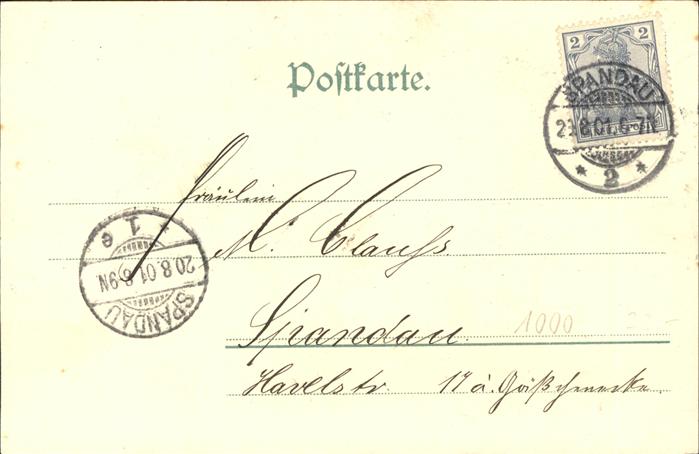 Postkarte.
2 2
SPANDAU
2 .8.01.6-7N.
* 2 *
Fräulein
M. Clauß.
1 e
20.8.01.8-9N
SPANDAU
Spandau. 1000
Havelstr. 17 a.